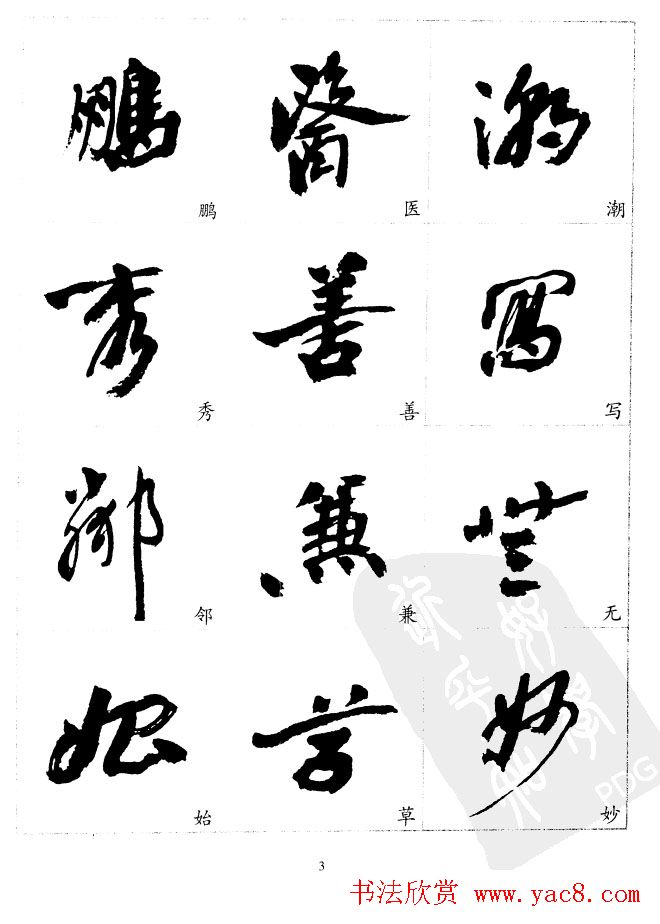 鵬 醫 潮
鹏 医 潮
秀 善 寫
秀 善 写
鄰 兼 無
邻 兼 无
始 草 妙
始 草 妙
3
书法欣赏 www.yac8.com
PDG